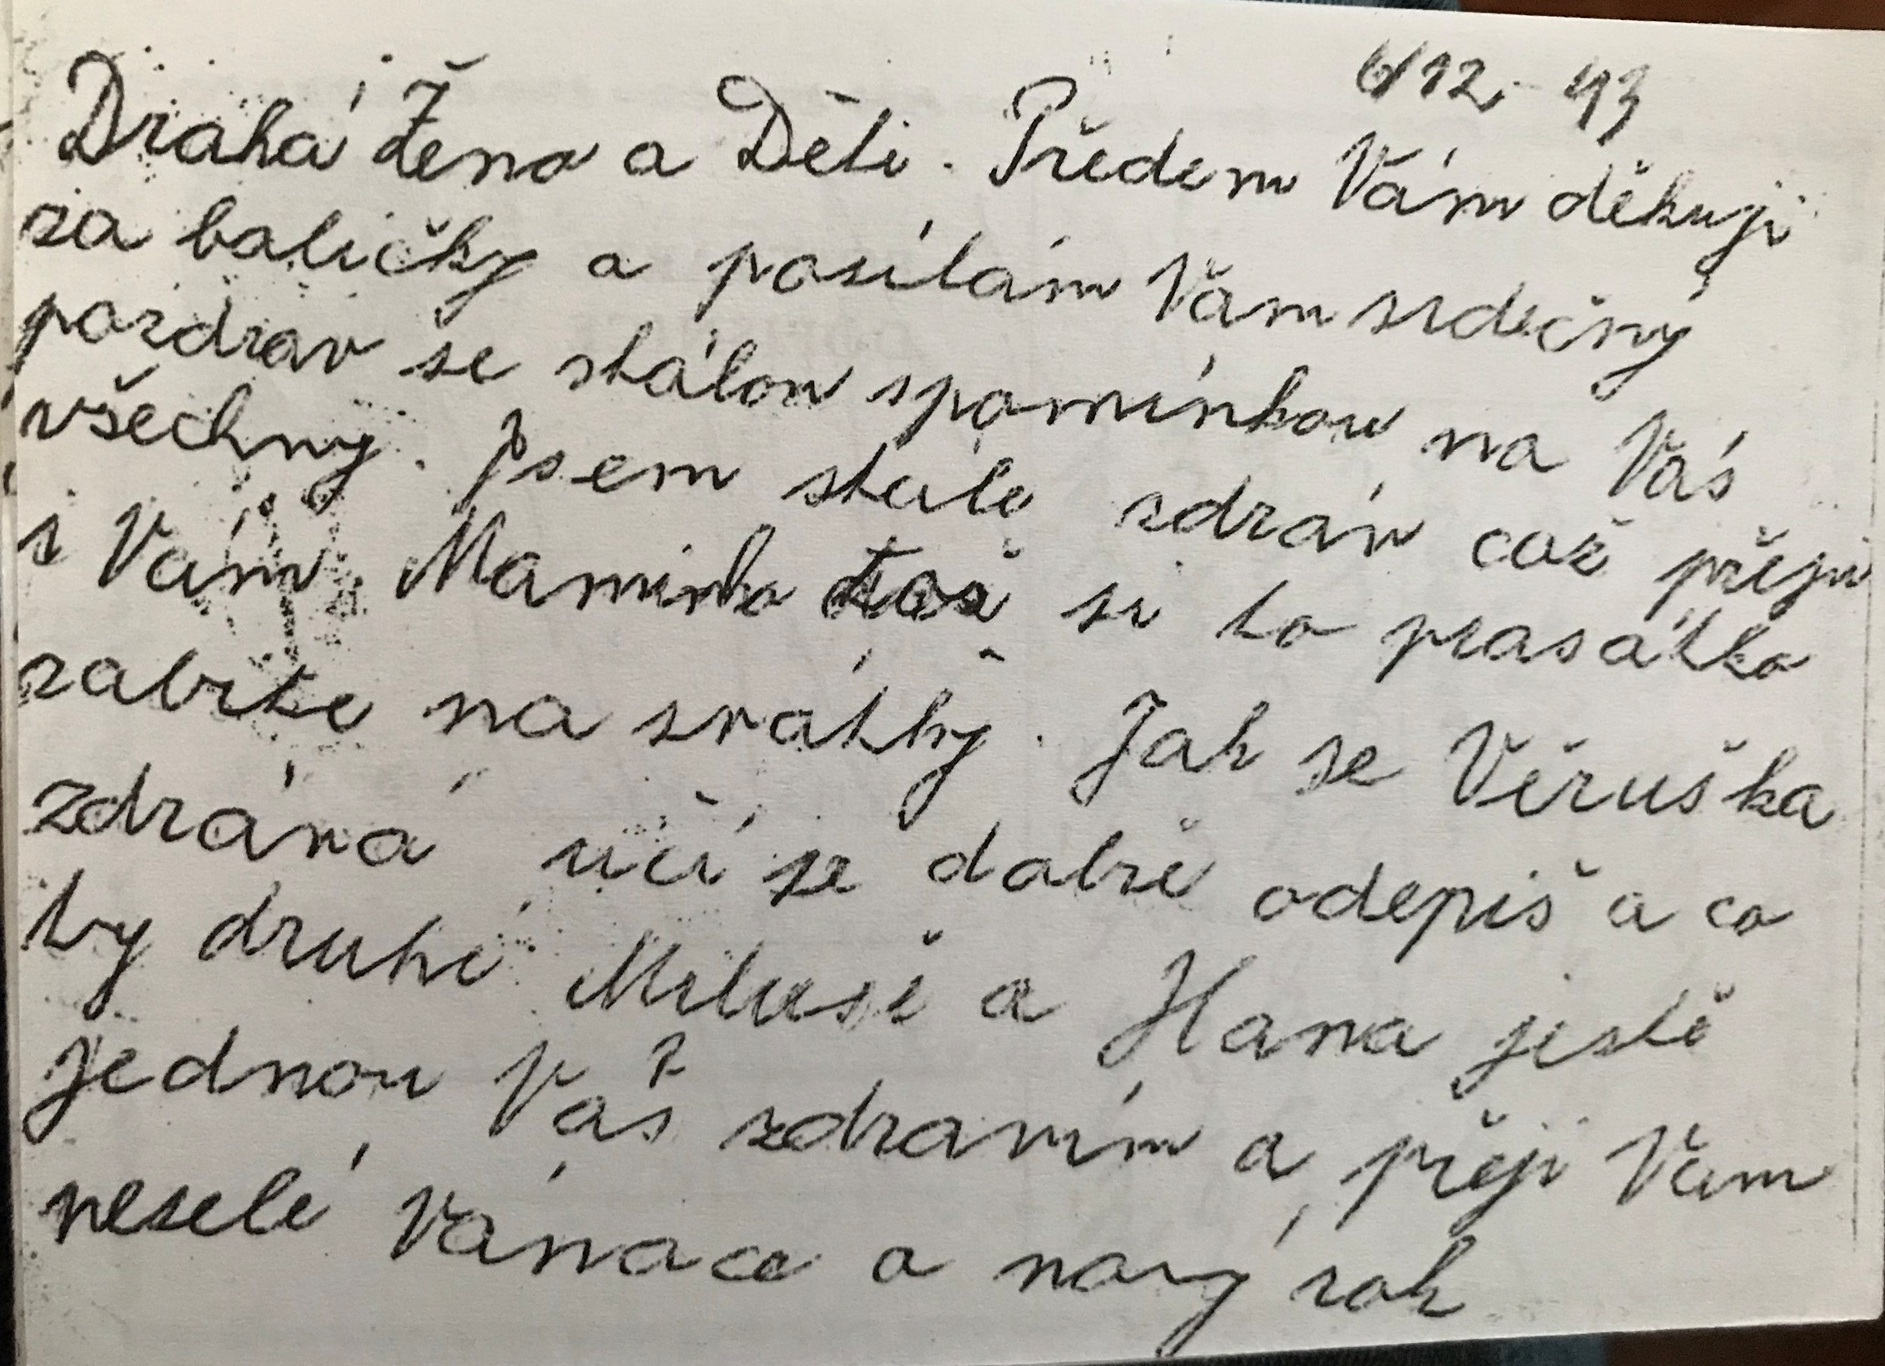 6/12. 43
Drahá Ženo a Děti. Předem Vám děkuji
za baličky a posílám Vám srdečný
pozdrav se stálou spomínkou na Vás
všechny. Jsem stále zdráv což přeju
i Vám. Maminko si to prasátko
zabite na svátky. Jak se Věruška
zdrává učí se dobře odepiš a co
ty druhé Miluše a Hana ještě
jednou Váš zdravím a přeji Vám
veselé Vánoce a nový rok